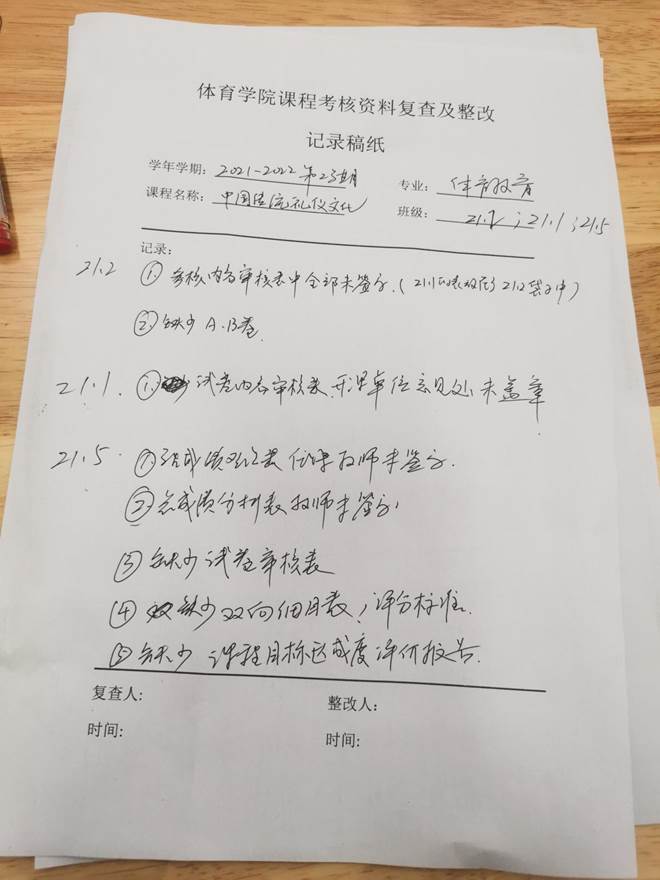 体育学院课程考核资料复查及整改
记录稿纸
学年学期: 2021-2022 第2学期
专业: 体育教育
课程名称: 中国传统礼仪文化
班级: 21.2;21.1;21.5
记录:
21.2 ① 考核内容审核表中全部未签字.(21.1的表放在了21.2袋子中)
② 缺少A.B卷.
21.1. ① 试卷内容审核表,开课单位意见处未盖章
21.5. ① 成绩登记表任课教师未签字.
② 总成绩分析表教师未签字,
③ 缺少试卷审核表
④ 缺少双向细目表,评分标准.
⑤ 缺少 课程目标达成度评价报告.
复查人:
整改人:
时间:
时间: